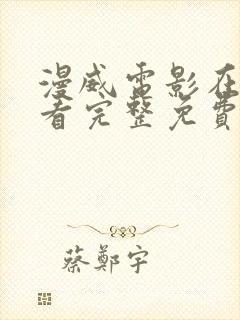 漫威电影在
看完整免费
蔡鄭宇